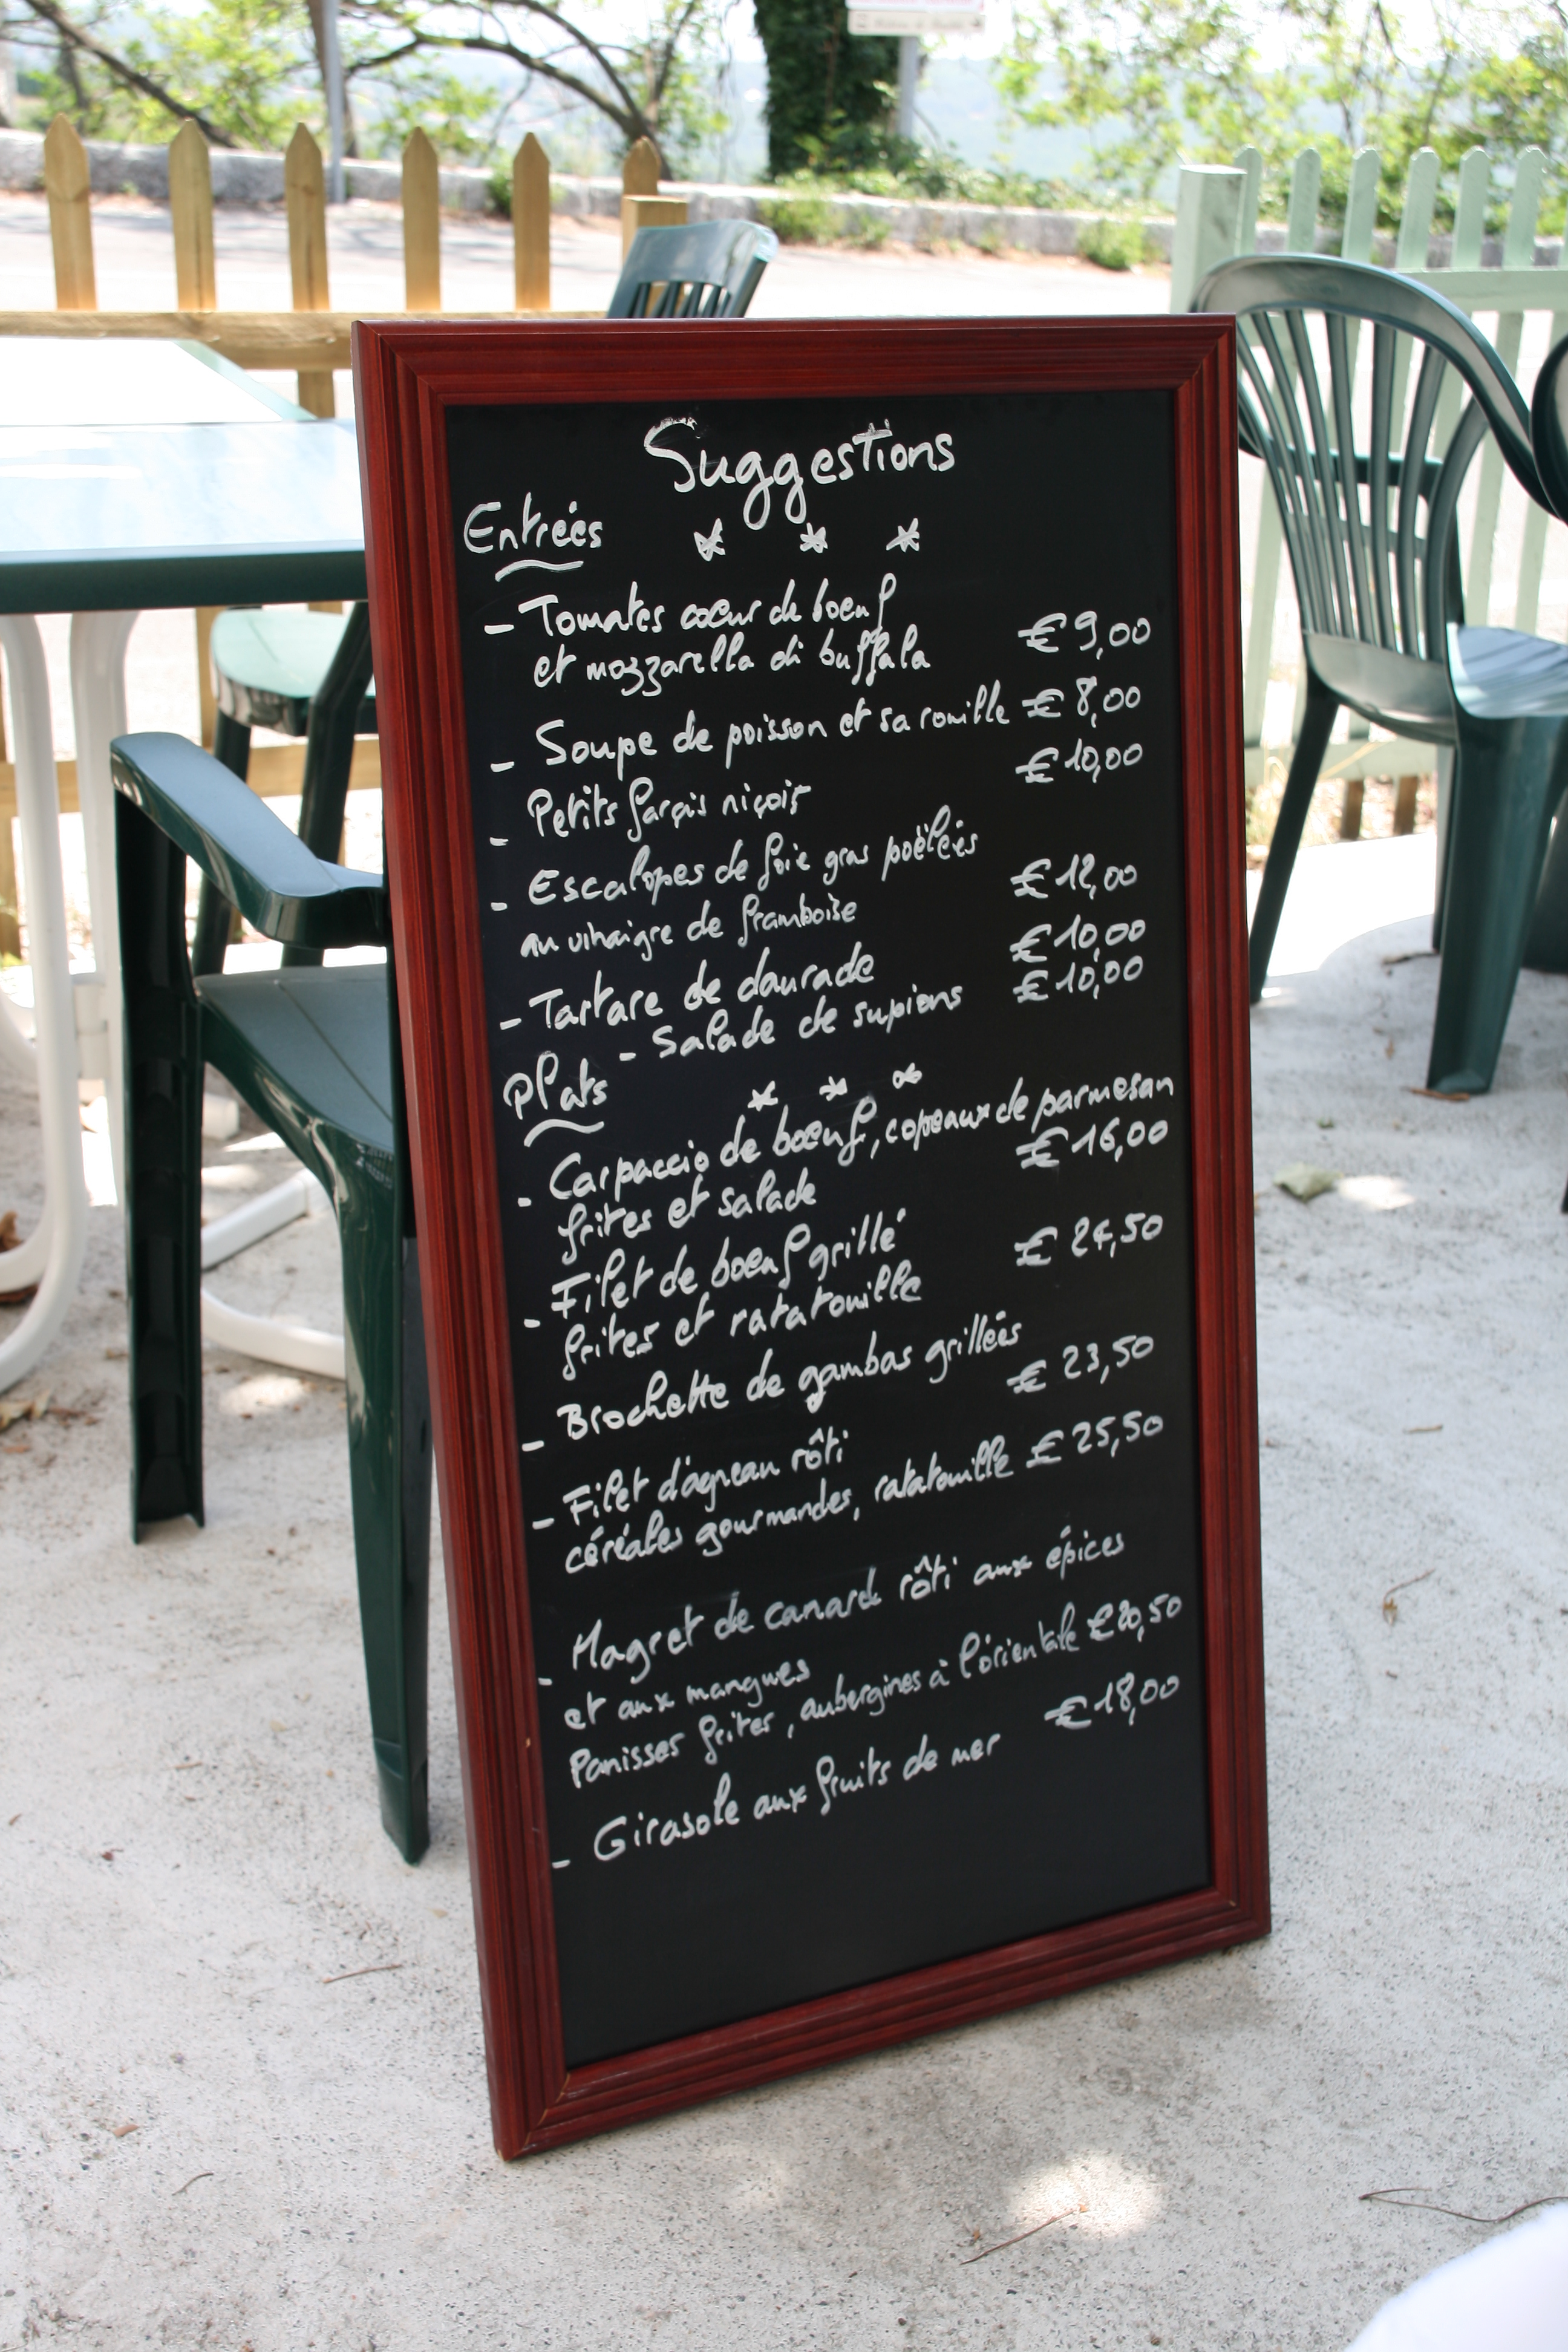 Suggestions
Entrées
* * *
- Tomates cœur de boeuf
et mozzarella di buffala € 9,00
- Soupe de poisson et sa rouille € 8,00
- Petits farçis niçois € 10,00
- Escalopes de foie gras poëlées
au vinaigre de framboise € 12,00
- Tartare de daurade € 10,00
- Salade de supions € 10,00
Plats
* * *
- Carpaccio de boeuf, copeaux de parmesan
frites et salade € 16,00
- Filet de boeuf grillé
frites et ratatouille € 24,50
- Brochette de gambas grillées € 23,50
- Filet d'agneau rôti
céréales gourmandes, ratatouille € 25,50
- Magret de canard rôti aux épices
et aux mangues
Panisses frites, aubergines à l'orientale € 20,50
- Girasole aux fruits de mer € 18,00